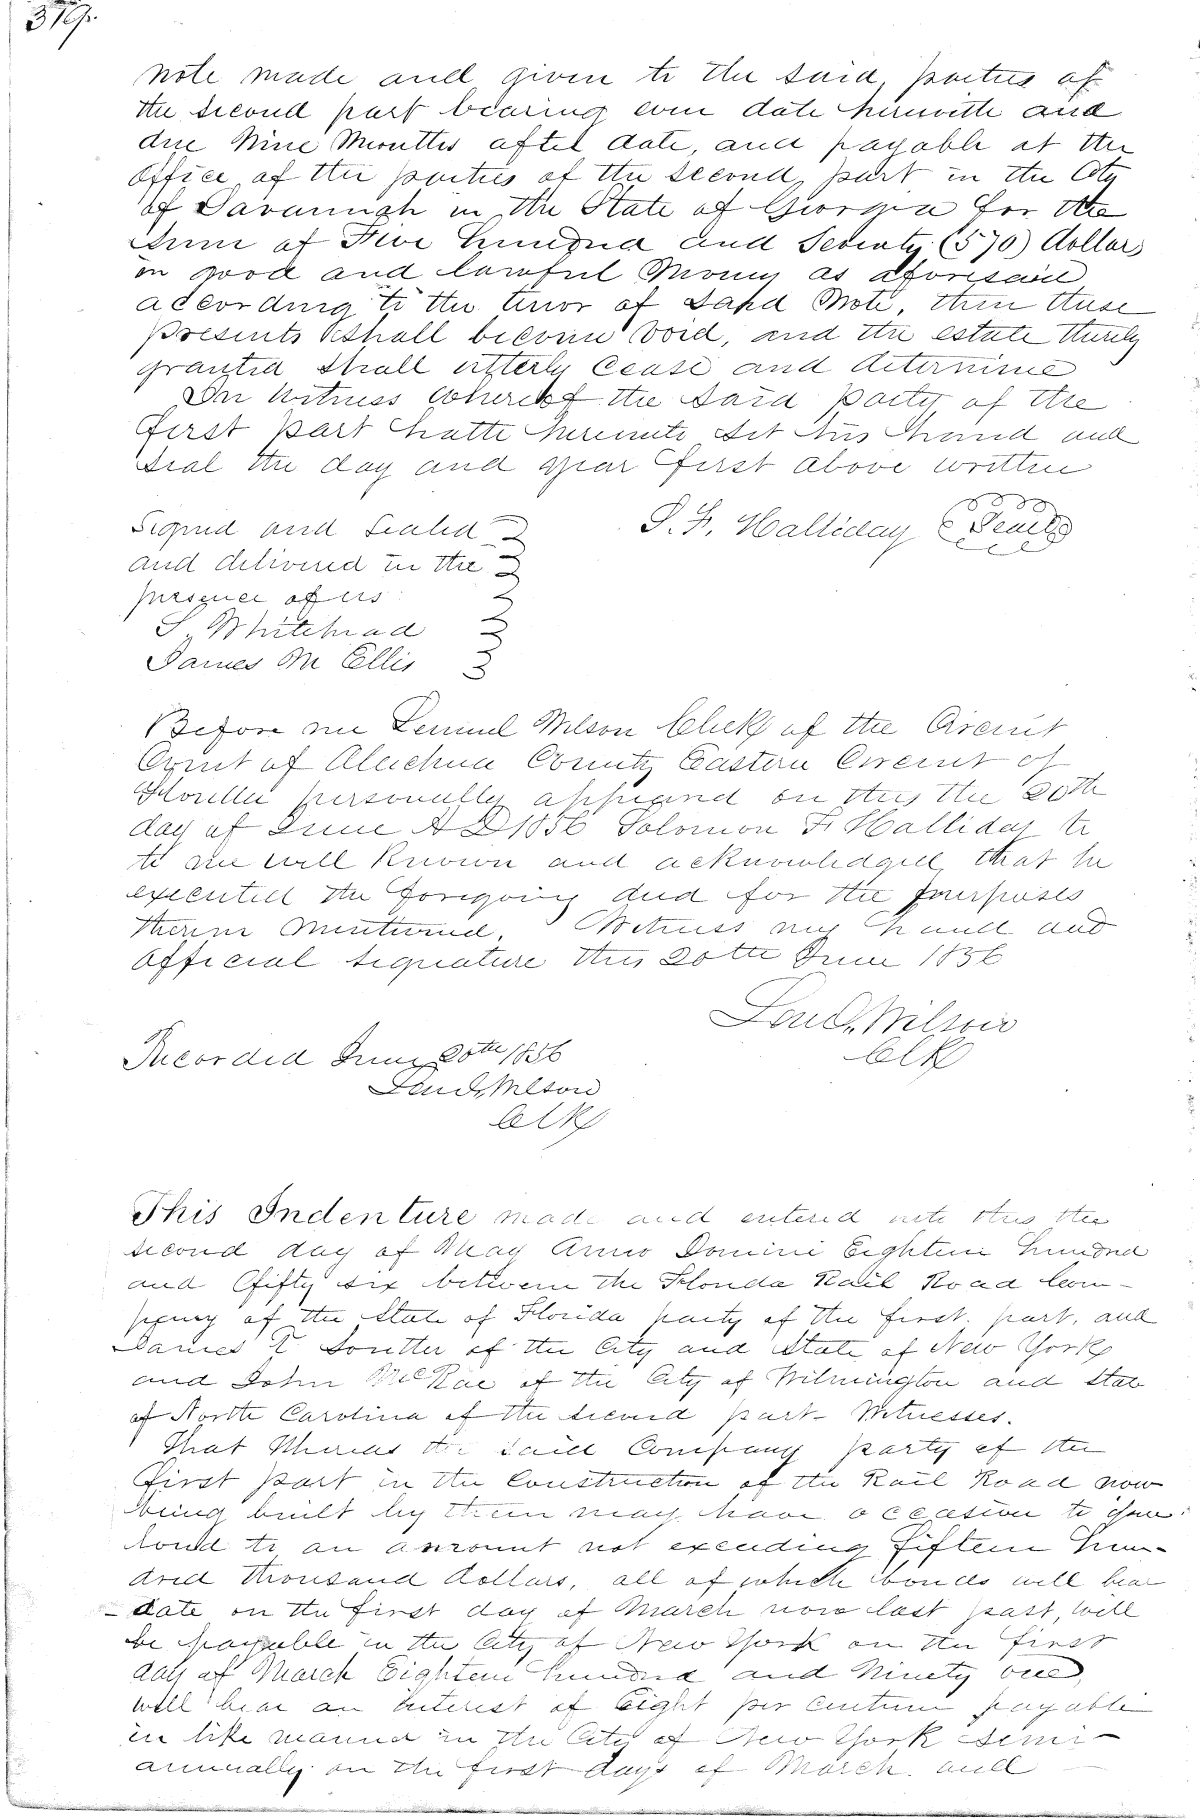 379.
note made and given to the said parties of
the second part bearing even date herewith and
due Nine Months after date, and payable at the
office of the parties of the second part in the City
of Savannah in the State of Georgia for the
sum of Five hundred and Seventy (570) dollars
in good and lawful Money as aforesaid
according to the tenor of said Note, then these
presents shall become void, and the estate thereby
granted shall utterly cease and determine
In Witness whereof the said party of the
first part hath hereunto set his hand and
seal the day and year first above written
Signed and Sealed
S. F. Halliday Seal
and delivered in the
presence of us
S. Whitehead
James M Ellis
Before me Lemuel Wilson Clerk of the Circuit
Court of Alachua County Eastern Circuit of
Florida personally appeared on this the 20th
day of June A D 1856 Solomon F Halliday to
to me well known and acknowledged that he
executed the foregoing deed for the purposes
therein mentioned. Witness my hand and
official signature this 20th June 1856
Leml. Wilson
Clk
Recorded June 20th 1856
Leml. Wilson
Clk
This Indenture made and entered into this the
second day of May Anno Domini Eighteen hundred
and fifty six between the Florida Rail Road Com-
pany of the State of Florida party of the first part, and
James T. Soutter of the City and State of New York
and John McRae of the City of Wilmington and State
of North Carolina of the second part - Witnesses.
That Whereas the said Company party of the
first part in the Construction of the Rail Road now
being built by them may have occasion to issue
bond to an amount not exceeding fifteen hun-
dred thousand dollars, all of which bonds will bear
date on the first day of March now last past, will
be payable in the City of New York on the first
day of March Eighteen hundred and Ninety one,
will bear an interest of Eight per centum payable
in like manner in the City of New York semi-
annually on the first days of March and